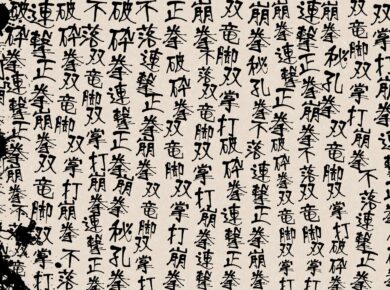 双竜脚双掌打破砕拳
双竜脚双掌打崩拳不落連撃正拳
崩拳秘孔拳双竜脚双掌打崩拳
連撃正拳崩拳不落双竜脚双掌打崩拳
崩拳連撃正拳破砕拳双竜脚双掌打
崩拳秘孔拳不落連撃正拳崩拳
双竜脚双掌打破砕拳連撃正拳
崩拳双竜脚双掌打崩拳連撃正拳
正拳破砕拳双竜脚双掌打崩拳
不落連撃正拳崩拳双竜脚双掌打
破砕拳連撃正拳崩拳秘孔拳
不落双竜脚双掌打崩拳連撃正拳
破砕拳双竜脚双掌打崩拳不落
連撃正拳崩拳双竜脚双掌打崩拳
破砕拳連撃正拳